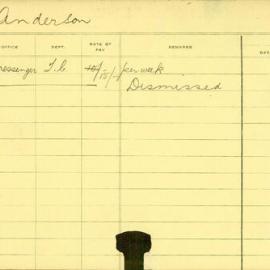 Anderson
OFFICE DEPT. RATE OF PAY REMARKS
essenger T.C. 10/ 15/- per week
Dismissed